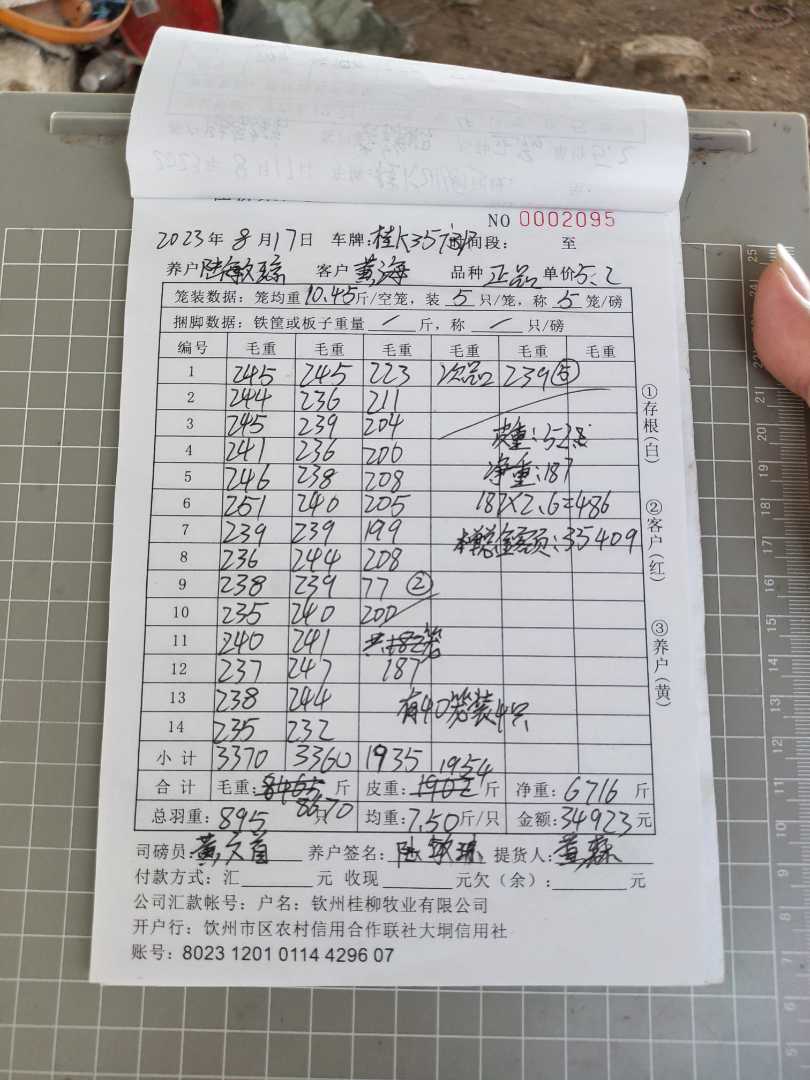 NO 0002095
2023年 8月17日 车牌:桂K357 时间段: 至
养户 陆敏琼 客户 黄海 品种 正品 单价5.2
笼装数据: 笼均重10.45斤/空笼, 装 5 只/笼, 称 5 笼/磅
捆脚数据: 铁筐或板子重量 / 斤, 称 / 只/磅
编号 毛重 毛重 毛重 毛重 毛重 毛重
1 245 245 223 次品 239 ⑤
2 244 236 211
3 245 239 204 皮重:52
4 241 236 200 净重:187
5 246 238 208
6 251 240 205 187×2.6=486
7 239 239 199 总金额:35409
8 236 244 208
9 238 239 77 ②
10 235 240 200
11 240 241 共182笼
12 237 247 187
13 238 244 有40笼装4只
14 235 232
小计 3370 3360 1935 1954
合计 毛重: 8670 斤 皮重: 斤 净重: 6716 斤
总羽重: 895 只 均重: 7.50斤/只 金额: 34923元
司磅员: 黄文首 养户签名: 陆敏琼 提货人: 黄森
付款方式: 汇 元 收现 元欠(余): 元
公司汇款帐号: 户名: 钦州桂柳牧业有限公司
开户行: 饮州市区农村信用合作联社大垌信用社
账号: 8023 1201 0114 4296 07
①存根(白)
②客户(红)
③养户(黄)